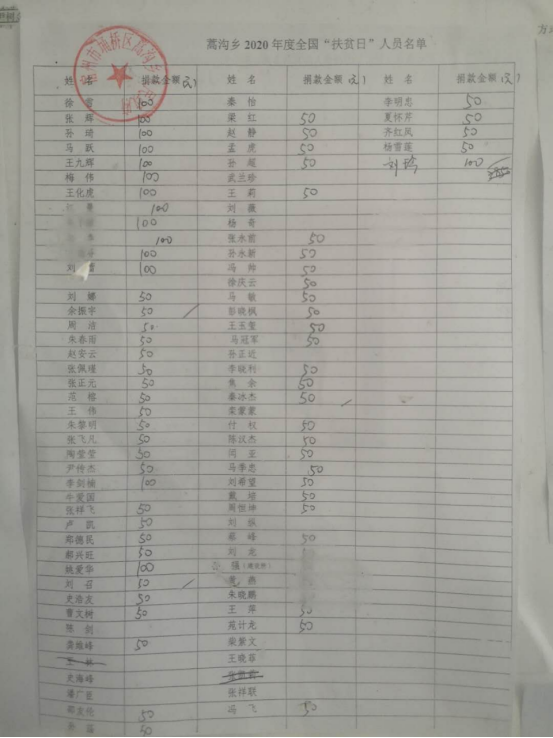 蒿沟乡2020年度全国“扶贫日”人员名单
姓 名 捐款金额(元) 姓 名 捐款金额(元) 姓 名 捐款金额(元)
100 秦怡 李明忠 50
张辉 100 梁红 50 夏怀芹 50
孙琦 100 赵静 50 齐红凤 50
马跃 100 孟虎 50 杨雷莲 50
王九辉 100 孙超 50 100
梅伟 100 武兰珍
王化虎 100 王莉 50
100 刘薇
100 杨奇
100 张永前 50
100 孙永新 50
刘 100 冯帅 50
徐庆云 50
刘娜 50 马敏 50
余振宇 50 彭晓枫 50
周洁 50 王玉玺 50
朱春雨 50 马冠军 50
赵安云 50 孙正近
张佩瑾 50 李晓利 50
张正元 50 焦余 50
范榕 50 秦冰杰 50
王伟 50 梁蒙蒙
朱黎明 50 付权 50
张飞凡 50 陈汉杰 50
陶莹莹 50 闫正 50
尹传杰 50 马季忠 50
李剑楠 100 刘希望 50
牛爱国 戴培 50
张祥飞 50 周恒坤 50
卢凯 50 刘
郑德民 50 蔡峰 50
郭兴旺 50 刘龙
姚爱华 100 强
刘召 50 燕
史浩友 50 朱晓鹏
曹文树 50 王萍 50
陈剑 苑计龙 50
龚维峰 50 柴紫文
王 王晓菲
史海峰
潘广臣 张祥联
邵友伦 50 冯飞 50
孙 50